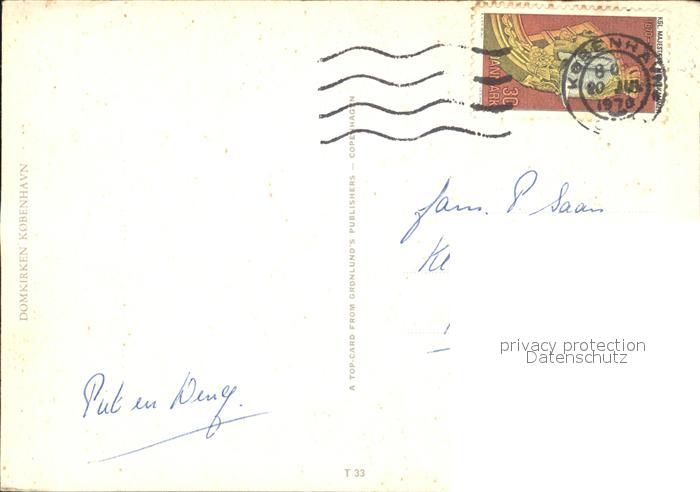 DOMKIRKEN KØBENHAVN
A TOP-CARD FROM GRØNLUND'S PUBLISHERS — COPENHAGEN
T 33
DANMARK
30
KØBENHAVN
20 JUL
1970
Fam. P Saan
Kl
privacy protection
Datenschutz
Piet en